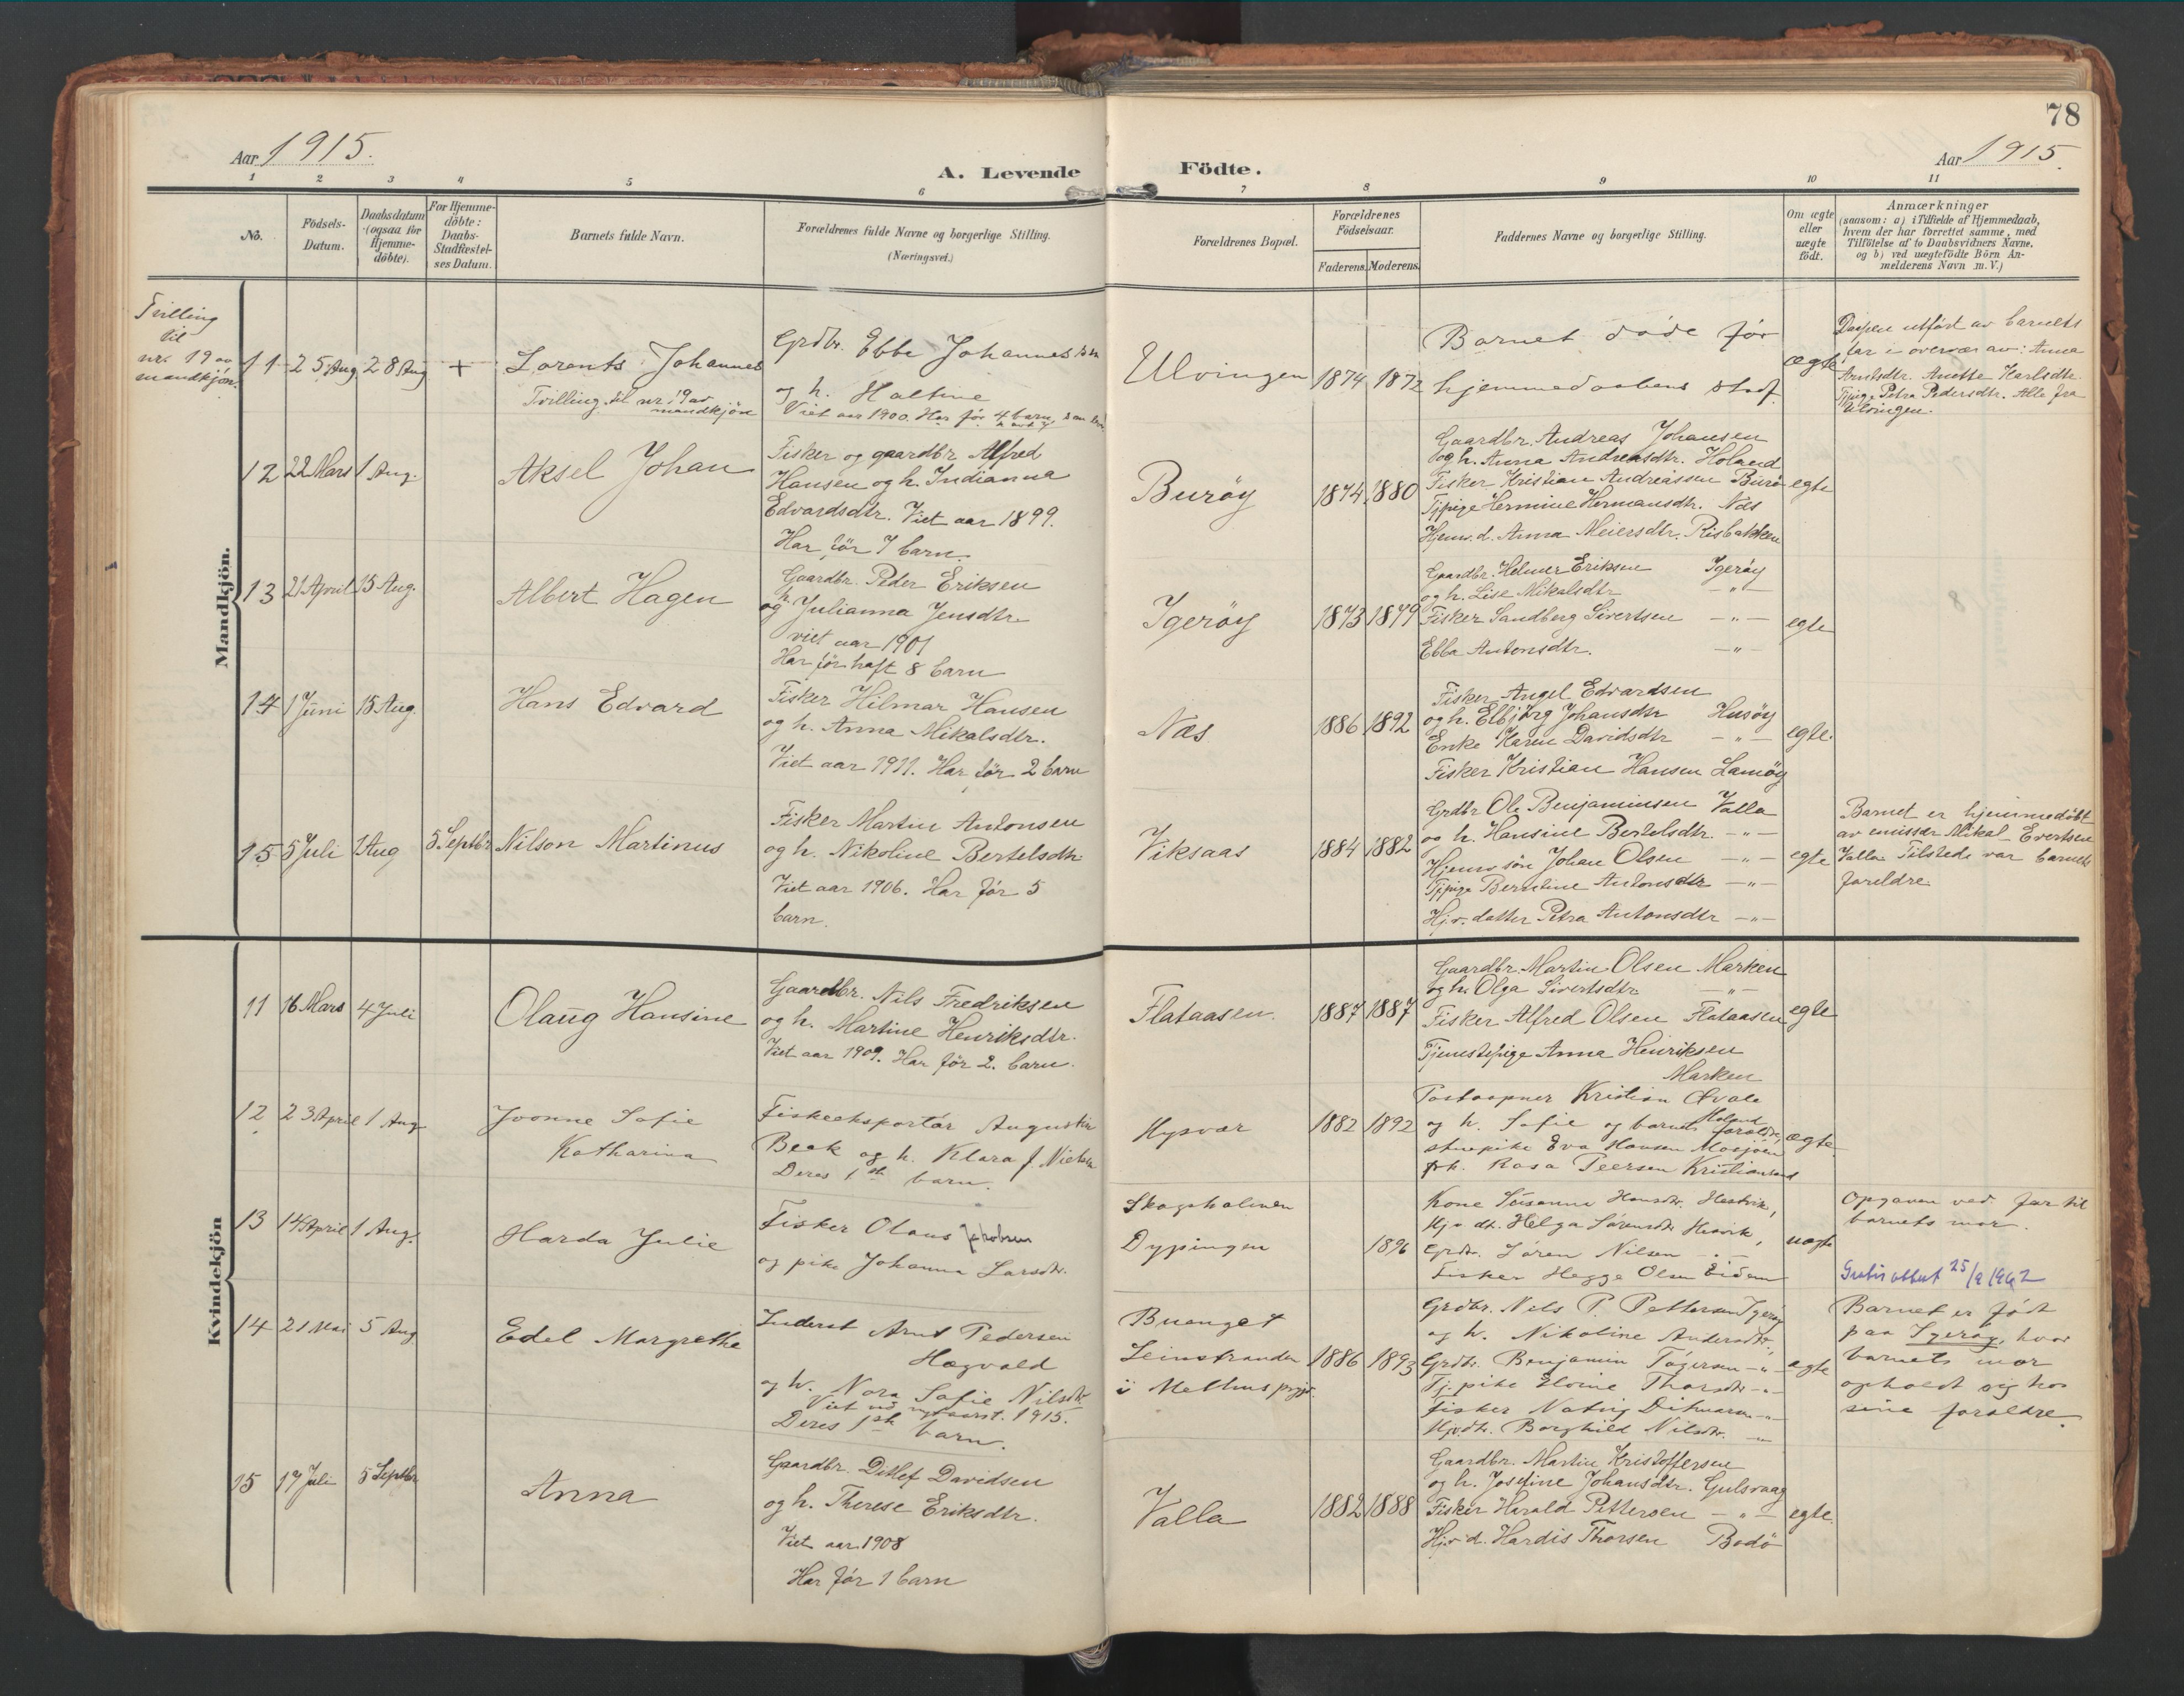 78
Aar 1915.
A. Levende Födte.
Aar 1915.
1 2 3 4 5 6 7 8 9 10 11
No.
Födsels-Datum.
Daabsdatum (ogsaa for Hjemme-döbte).
For Hjemme-döbte: Daabs-Stadfæstel-ses Datum.
Barnets fulde Navn.
Forældrenes fulde Navne og borgerlige Stilling.
(Næringsvei.)
Forældrenes Bopæl.
Forældrenes Födselsaar.
Faderens. Moderens.
Faddernes Navne og borgerlige Stilling.
Om ægte eller uægte födt.
Anmærkninger
(saasom: a) i Tilfælde af Hjemmedaab,
hvem der har forrettet samme, med
Tilföielse af to Daabsvidners Navne.
og b) ved uægtefödte Börn An-
melderens Navn m. V.)
Mandkjön.
Tvilling
til
nr. 19 av
mandkjön.
11 25 Aug 28 Aug +
Lorents Johannes
Tvilling til nr. 19 av
mandkjön
Grdbr. Ebbe Johannessen
og h. Haltine
Viet aar 1900. Har før 4 barn
Ulvingen
1874 1872
Barnet døde før
hjemmedaabens stadf.
ægte
Daapen utført av barnets
far i overvær av: Anna
Arntsdtr. Anette Karlsdtr.
Tjpige Petra Pedersdtr. Alle fra
Ulvingen.
12 22 Mars 1 Aug.
Aksel Johan
Fisker og gaardbr Alfred
Hansen og h. Indianna
Edvardsdtr. Viet aar 1899.
Har før 7 barn.
Burøy
1874 1880
Gaardbr. Andreas Johansen
og h. Anna Andreasdtr. Holand
Fisker Kristian Andreassen Burø
Tjpige Hermine Hermansdtr. Næs
Hjemv. d. Anna Meiersdtr. Risbakken
egte
13 21 April 15 Aug.
Albert Hagen
Gaardbr. Peder Eriksen
og h. Julianna Jensdtr
viet aar 1901
Har før haft 8 barn
Igerøy
1873 1879
Gaardbr. Helmer Eriksen Igerøy
og h. Lise Mikalsdtr -"-
Fisker Sandberg Sivertsen -"-
Ebba Antonsdtr. -"-
egte
14 1 Juni 15 Aug.
Hans Edvard
Fisker Hilmar Hansen
og h. Anna Mikalsdtr.
Viet aar 1911. Har før 2 barn
Næs
1886 1892
Fisker Angel Edvardsen
og h. Elbjørg Johansdtr Husøy
Enke Karen Davidsdtr -"-
Fisker Kristian Hansen Lamøy
egte.
15 5 Juli 1 Aug 5 Septbr
Nilson Martinus
Fisker Martin Antonsen
og h. Nikoline Bertelsdtr
Viet aar 1906. Har før 5
barn.
Viksaas
1884 1882
Grdbr Ole Benjaminsen Valla
og h. Hansine Bertelsdtr. -"-
Hjemv søn Johan Olsen -"-
Tjpige Berntine Antonsdtr -"-
Hj.v. datter Petra Antonsdtr -"-
egte
Barnet er hjemmedøbt
av emissær Mikal Evertsen
Valla Tilstede var barnets
foreldre.
Kvindekjön
11 16 Mars 4 Juli
Olaug Hansine
Gaardbr. Nils Fredriksen
og h. Martine Henriksdtr.
Viet aar 1909. Har før 2. barn.
Flataasen.
1887 1887
Gaardbr. Martin Olsen Marken
og h. Olga Sivertsdtr -"-
Fisker Alfred Olsen Flataasen
Tjenestepige Anna Henriksen
Marken
egte
12 23 April 1 Aug
Yvonne Sofie
Katharina
Fiskeeksportør Augustin
Beck og h. Klara f. Nielsen
Deres 1ste barn.
Kysvær
1882 1892
Postaapner Kristian Qvale
og h. Sofie Holand og barnets forældre,
stuepike Eva Hansen Mosjøen
frk. Rosa Peersen Kristiansund
ægte
13 14 April 1 Aug.
Harda Julie
Fisker Olaus Jakobsen
og pike Johanna Larsdtr.
Skogsholmen
Dypingen
1896
Kone Susanna Hansdtr. Hestvik,
Hjv dtr. Helga Sørensdtr Hesvik,
Grdbr. Søren Nilsen -"-
Fisker Hegge Olsen Eidem
uægte
Opgaven ved. far til
barnets mor.
25/9 1942
14 21 Mai 5 Aug
Edel Margrethe
Inderst Arnt Pedersen
Hagvold
og h. Nora Sofie Nilsdtr
Viet ved nytaarst. 1915.
Deres 1ste barn.
Buenget
Leinstranden
i Melhus prgjv.
1886 1893
Grdbr. Nils P. Pettersen Igerøy
og h. Nikoline Andersdtr.
Grdbr. Benjamin Tøgersen -"-
Tj.pike Elvine Thorsdtr -"-
fisker Notvig Ditmarsen -"-
Hjvdtr. Borghild Nilsdtr. -"-
ægte
Barnet er født
paa Igerøy, hvor
barnets mor
opholdt sig hos
sine forældre.
15 17 Juli 5 Septbr
Anna
Gaardbr. Ditlef Davidsen
og h. Therese Eriksdtr.
Viet aar 1908
Har før 1 barn
Valla
1882 1888
Gaardbr. Martin Kristoffersen
og h. Josefine Johansdtr. Gulsvaag
Fisker Harald Pettersen -"-
Hjv d. Hardis Thorsen Bodø
egte.